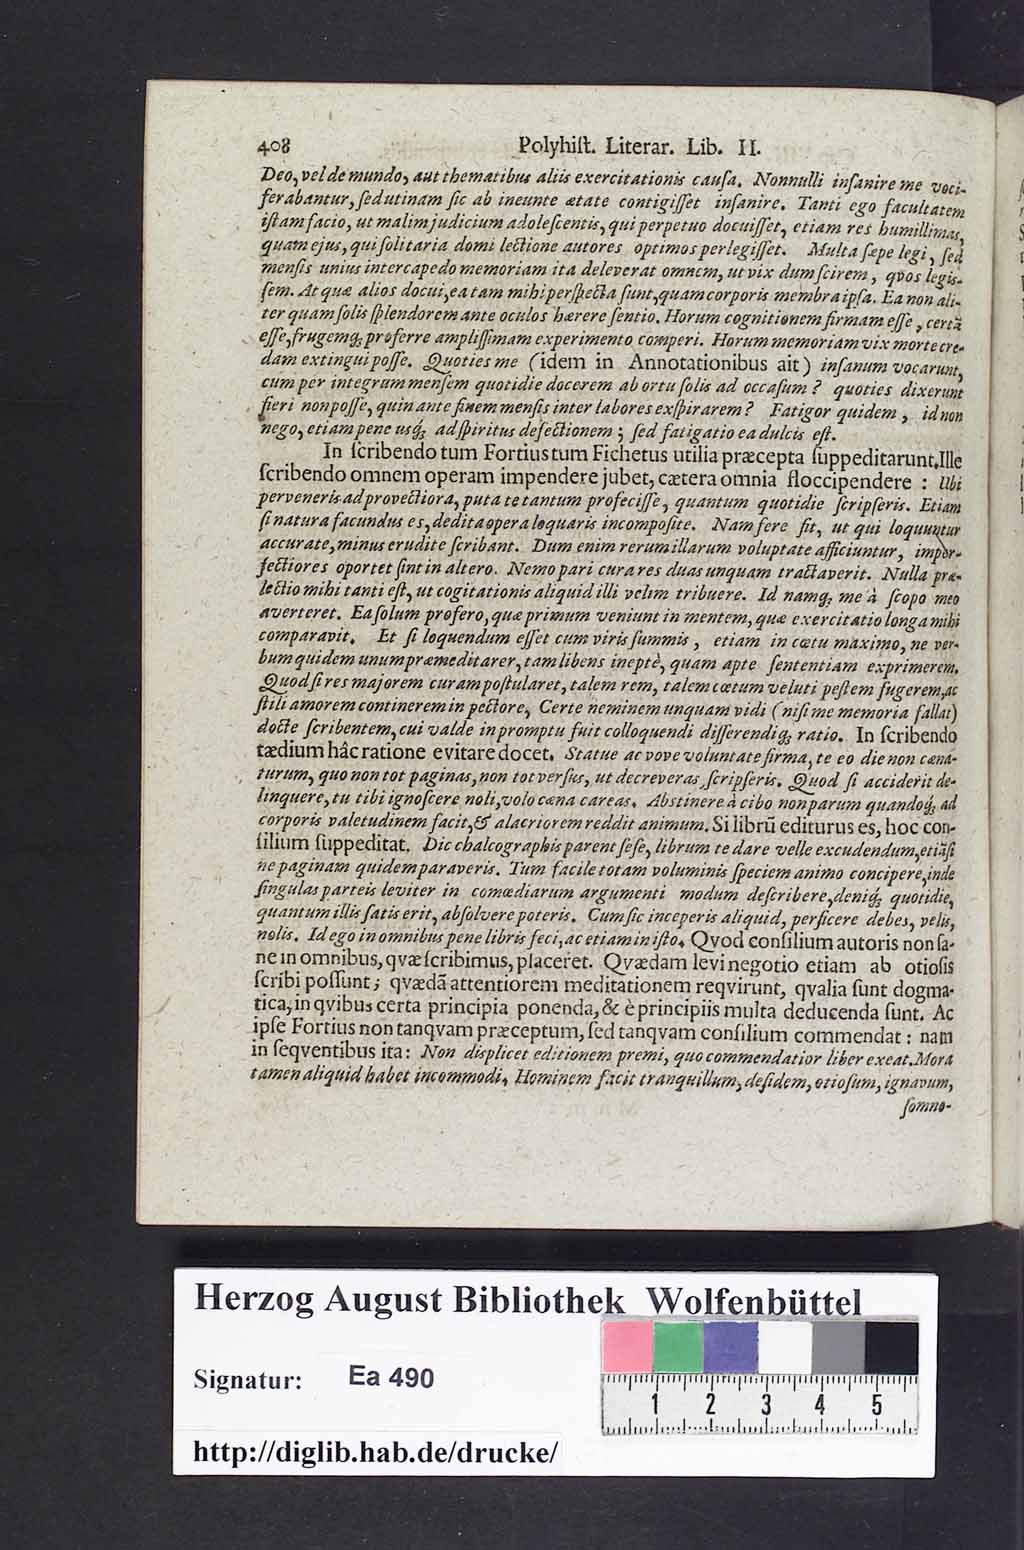 408 Polyhiſt. Literar. Lib. II.
Deo, vel de mundo, aut thematibus aliis exercitationis cauſa. Nonnulli inſanire me voci-
ferabantur, ſed utinam ſic ab ineunte ætate contigiſſet inſanire. Tanti ego facultatem
iſtam facio, ut malim judicium adoleſcentis, qui perpetuo docuiſſet, etiam res humillimas,
quam ejus, qui ſolitaria domi lectione autores optimos perlegiſſet. Multa ſæpe legi, ſed
menſis unius intercapedo memoriam ita deleverat omnem, ut vix dum ſcirem, qvos legiſ-
ſem. At quæ alios docui, ea tam mihi perſpecta ſunt, quam corporis membra ipſa. Ea non ali-
ter quam ſolis ſplendorem ante oculos hærere ſentio. Horum cognitionem firmam eſſe, certã
eſſe, frugemq; proferre ampliſſimam experimento comperi. Horum memoriam vix morte cre-
dam extingui poſſe. Quoties me (idem in Annotationibus ait) inſanum vocarunt,
cum per integrum menſem quotidie docerem ab ortu ſolis ad occaſum? quoties dixerunt
fieri non poſſe, quin ante finem menſis inter labores exſpirarem? Fatigor quidem, id non
nego, etiam pene usq; ad ſpiritus defectionem; ſed fatigatio ea dulcis eſt.
In ſcribendo tum Fortius tum Fichetus utilia præcepta ſuppeditarunt. Ille
ſcribendo omnem operam impendere jubet, cætera omnia floccipendere: Ubi
perveneris ad provectiora, puta te tantum profeciſſe, quantum quotidie ſcripſeris. Etiam
ſi natura facundus es, dedita opera loquaris incompoſite. Nam fere fit, ut qui loquuntur
accurate, minus erudite ſcribant. Dum enim rerum illarum voluptate afficiuntur, imper-
fectiores oportet ſint in altero. Nemo pari cura res duas unquam tractaverit. Nulla præ-
lectio mihi tanti eſt, ut cogitationis aliquid illi velim tribuere. Id namq; me à ſcopo meo
averteret. Ea ſolum profero, quæ primum veniunt in mentem, quæ exercitatio longa mihi
comparavit. Et ſi loquendum eſſet cum viris ſummis, etiam in cœtu maximo, ne ver-
bum quidem unum præmeditarer, tam libens ineptè, quam apte ſententiam exprimerem.
Quod ſi res majorem curam poſtularet, talem rem, talem cœtum veluti peſtem fugerem, ac
ſtili amorem continerem in pectore. Certe neminem unquam vidi (niſi me memoria fallat)
docte ſcribentem, cui valde in promptu fuit colloquendi diſſerendiq; ratio. In ſcribendo
tædium hâc ratione evitare docet. Statue ac vove voluntate firma, te eo die non cæna-
turum, quo non tot paginas, non tot verſus, ut decreveras, ſcripſeris. Quod ſi acciderit de-
linquere, tu tibi ignoſcere noli, volo cæna careas. Abſtinere à cibo non parum quandoq; ad
corporis valetudinem facit, & alacriorem reddit animum. Si librũ editurus es, hoc con-
ſilium ſuppeditat. Dic chalcographis parent ſeſe, librum te dare velle excudendum, etiãſi
ne paginam quidem paraveris. Tum facile totam voluminis ſpeciem animo concipere, inde
ſingulas parteis leviter in comœdiarum argumenti modum deſcribere, deniq; quotidie,
quantum illis ſatis erit, abſolvere poteris. Cum ſic inceperis aliquid, perficere debes, velis,
nolis. Id ego in omnibus pene libris feci, ac etiam in iſto. Qvod conſilium autoris non ſa-
ne in omnibus, qvæ ſcribimus, placeret. Qvædam levi negotio etiam ab otioſis
ſcribi poſſunt; qvædã attentiorem meditationem reqvirunt, qvalia ſunt dogma-
tica, in qvibus certa principia ponenda, & è principiis multa deducenda ſunt. Ac
ipſe Fortius non tanqvam præceptum, ſed tanqvam conſilium commendat: nam
in ſeqventibus ita: Non displicet editionem premi, quo commendatior liber exeat. Mora
tamen aliquid habet incommodi. Hominem facit tranquillum, deſidem, otioſum, ignavum,
ſomno-
Herzog August Bibliothek Wolfenbüttel
Signatur: Ea 490
1 2 3 4 5
http://diglib.hab.de/drucke/